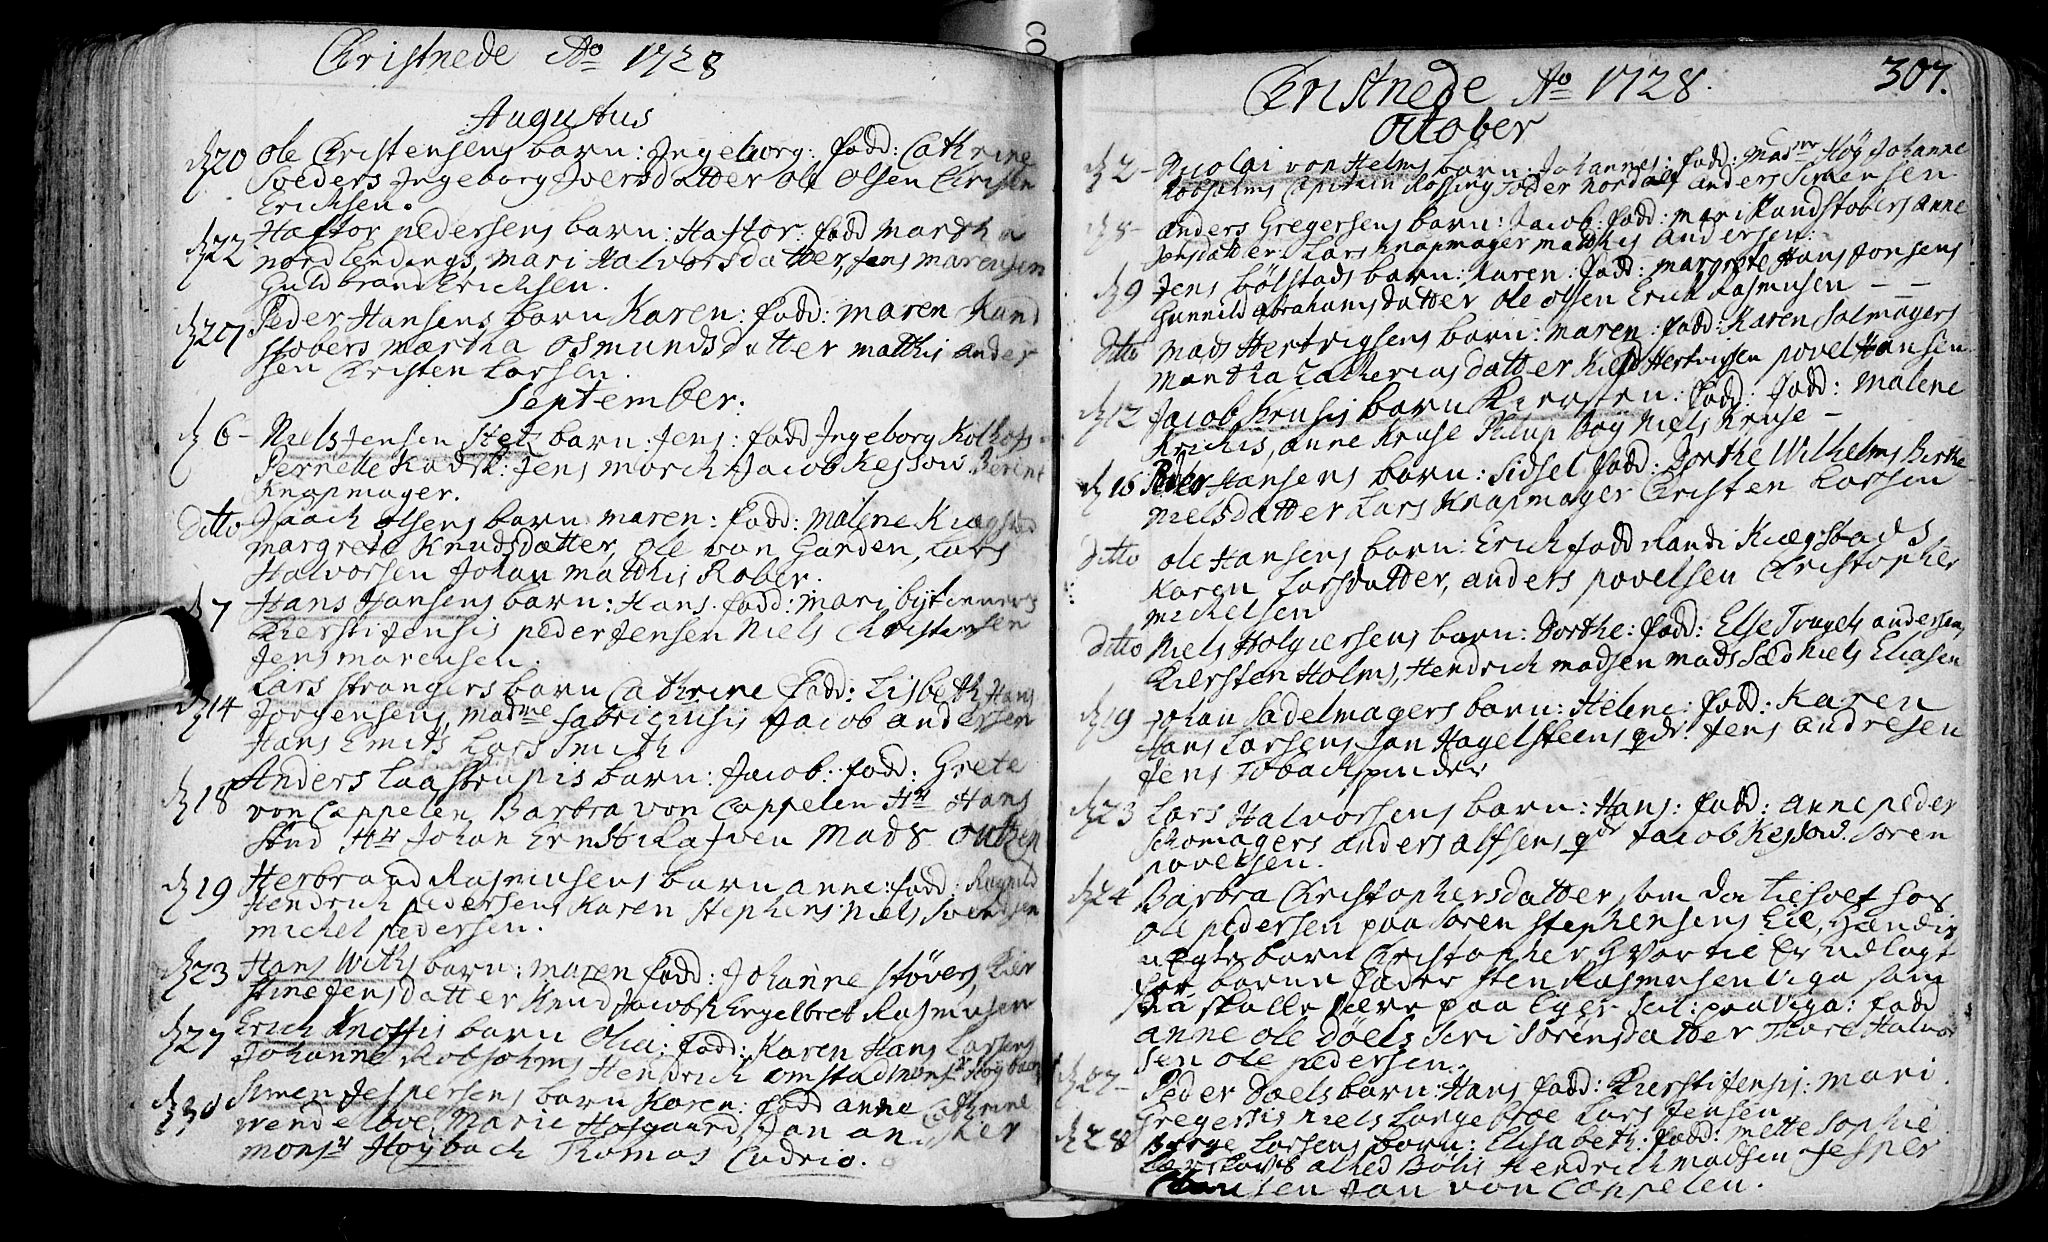 Christnede Ao 1728
Augustus
d 20 Ole Christensens barn: Ingeborg: fadd: Cathrine
Sveders Ingeborg Iversdatter Ole Olsen Christen
Erichsen.
d 22 Haftor pedersens barn: Haftor: fadd Martha
nordlendings, mari Halvorsdatter, Jens marensen
Guldbrand Erichsen.
d 27 Peder Hansens barn Karen: fadd: maren Rand
stobers martha Osmundsdatter matthis ander
sen Christen Larsen.
September.
d 6 - Niels Jensen Steh barn: Jens: fadd Ingeborg Kolhofs
Pernelle Kadsk: Jens morch Jacob Kessow. Berent
Knapmager.
Ditto Isach Olsens barn maren: fadd: malene Kiægstad
margrete Knudsdatter, Ole von Garden, Lars
Halvorsen Johan matthis Rober.
d 7 Hans Hansens barn: Hans. fadd: mari bijtenners
Kiersti Jensis peder Jensen Niels Christensen
Jens marensen.
d 14 Lars strangers barn Cathrine fadd: Lisbeth Hans
Jorgensens, madme fabriciusis Jacob andersen
Hans Smits Lars Smith
d 18 Anders Laastrupis barn: Jacob: fadd: Grete
von Cappelen Barbra von Cappelen Hr Hans
Stud Hr Johan Ernst Mads Outzen
d 19 Herbrand Rasmusens barn anne: fadd: Ragnild
Hendrich pedersens Karen Stephens Niels Svendsen
michel pedersen.
d 23 Hans Withs barn: maren fadd: Johanne Støvers, Kier
stine Jensdatter Knud Jacobsen Engelbret Rasmusen
d 27 Erich Knoffis barn Olia: fadd: Karen Hans Larsens
Johanne Robsohms Hendrich omstad monsr Høybach
d 30 Simen Jespersens barn Karen: fadd anne Cathrine
wendelboe, Marie Hofgaard, Jan anker
monsr Hoybach Thomas Cudrio.
Christnede Ao 1728. 307.
October
d 2 - Nicolai von Helms barn: Johannes: fadd: Madme Høy Johanne
Robsohms Capitain Rossing Peder Nordal anders Simensen
d 8 - anders Gregersens barn: Jacob: fadd: mari Randstobers anne
Jensdatter Lars Knapmager matthis andersen.
d 9 Jens bølstads barn: Karen: fadd: margrete Hans Jonsens
Gunnild Abrahamsdatter Ole Olsen Erich Rasmusen - -
ditto Mads Hertvigsens barn: maren: fadd: Karen Salmagers
Martha Zacheriasdatter Kield Hertvigsen povel Hansen
d 12 Jacob Krusis barn Kiersten: fadd: fadd: Malene
Krichis, anne Kruse Philup boy Niels Kruse -
d 16 Peder Hansens barn: Sidsel fadd: Dorthe Wilhelms Birthe
Nielsdatter Lars Knapmager Christen Larsen
ditto Ole Hansens barn: Erich fadd Randi Kiægstads
Karen Larsdatter, anders povelsen Christopher
michelsen
ditto Niels Holgersens barn: Dorthe: fadd: Else Truyels andersens
Kiersten Holms, Hendrich madsen mads Niels Eliasen
d 19 Johan Sadelmagers barn: Helene: fadd: Karen
Hans Larsens Jan Hagelsteens qdr Jens andresen
Jens Tobachspinder
d 23 Lars Halvorsens barn: Hans: fadd: anne peder
Schomagers anders alfsens qdr Jacob Kessow. Soren
povelsen.
d 24 Barbra Christophersdatter som der tieset hos
Ole pedersen paa Soren Stephensens Eie, Hendis
uegte barn Christopher Hvortil er udlagt
for barne fader Sten Rasmusen Viga som
skal skulle være paa Eger scil: paa Viga: fadd
anne Ole Døels Siri Sorensdatter Thore Halvor
sen Ole pedersen.
d 27 - Peder Doels barn: Hans fadd: Kiersti Jensis: mari
Gregersis Niels Langebroe Lars Jensen
d 28 Børge Larsens barn: Elisabeth: fadd: mette Sophie
alhed Bølis Hendrich madsen Jesper
Clausen Jan von Cappelen.